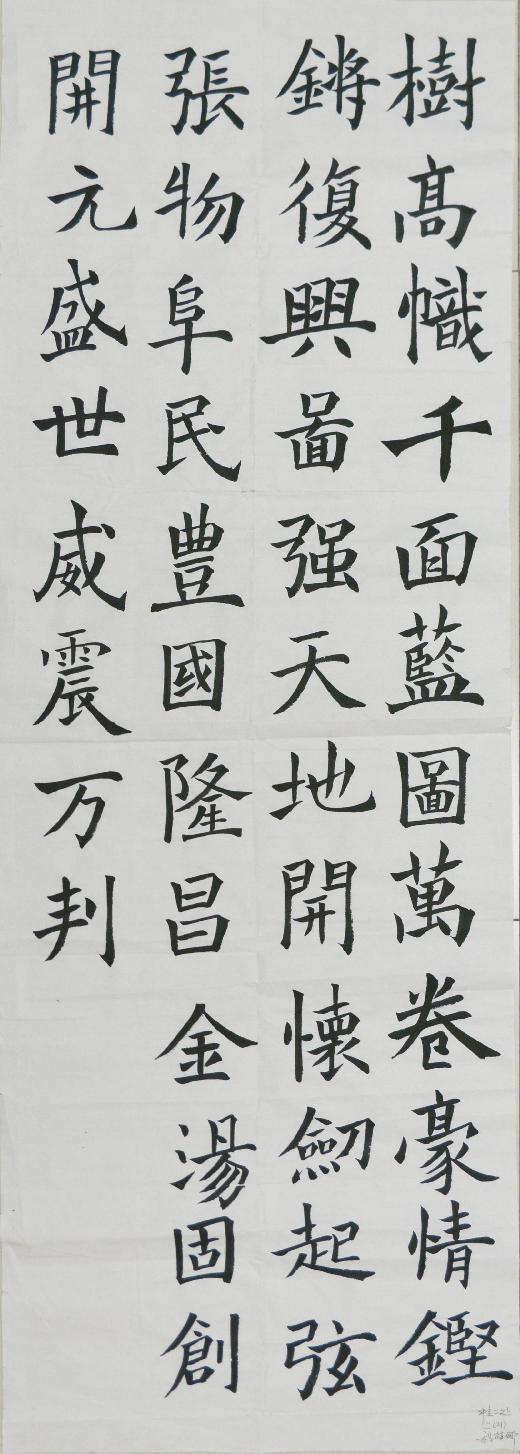 樹高幟千面藍圖萬卷豪情鏗
鏘復興啚强天地開懷劒起弦
張物阜民豊國隆昌金湯固創
開元盛世威震万判